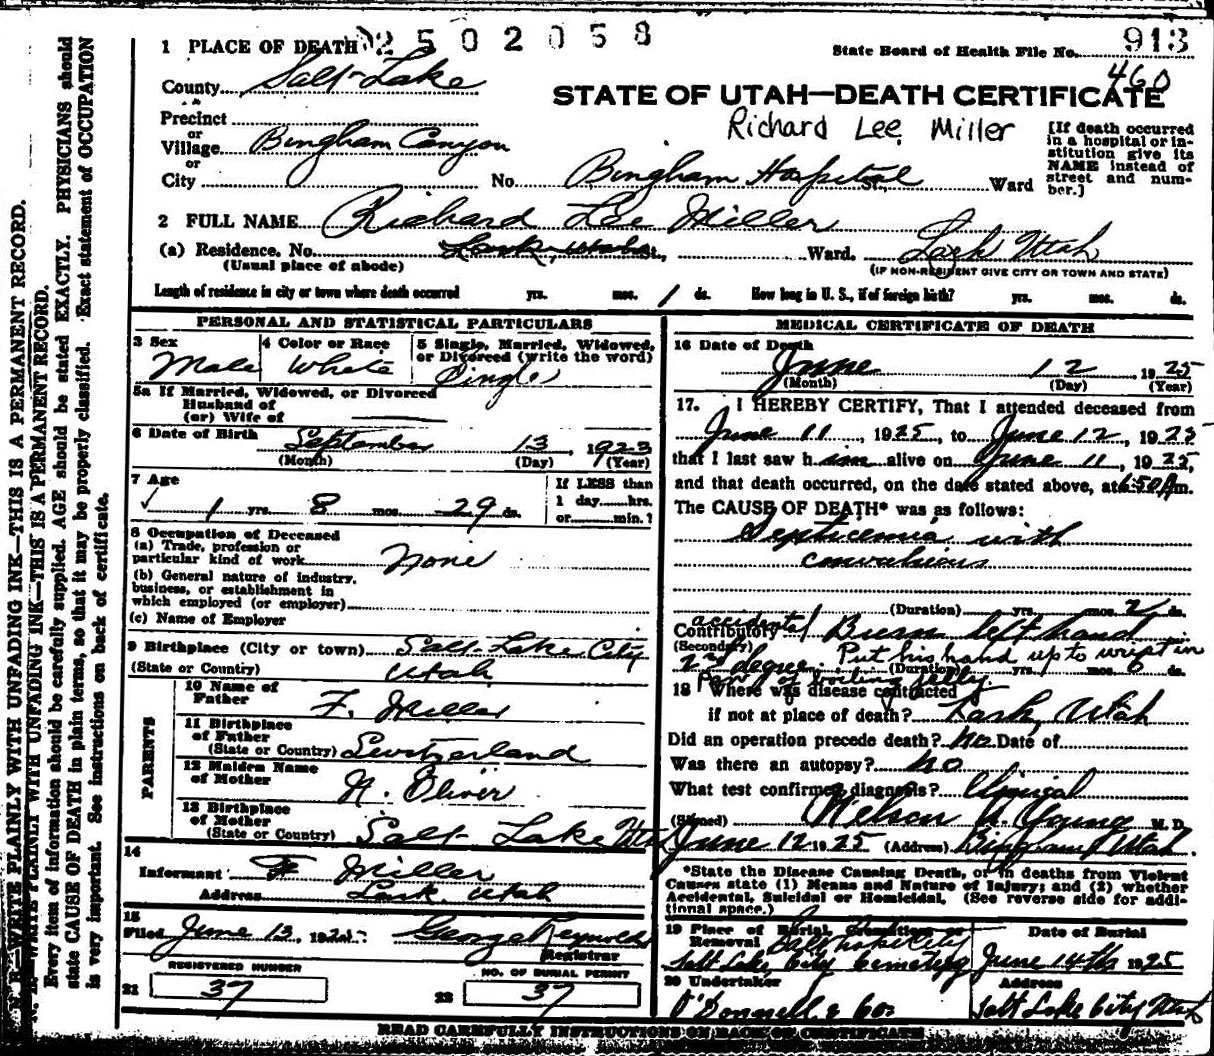 2502058
1 PLACE OF DEATH
State Board of Health File No. 913
460
County Salt Lake
STATE OF UTAH—DEATH CERTIFICATE
Richard Lee Miller
Precinct
or
Village Bingham Canyon
or
City No. Bingham Hospital St., Ward
[If death occurred
in a hospital or in-
stitution give its
NAME instead of
street and num-
ber.]
2 FULL NAME Richard Lee Miller
(a) Residence. No. Lark, Utah St., Ward. Lark Utah
(Usual place of abode) (IF NON-RESIDENT GIVE CITY OR TOWN AND STATE)
Length of residence in city or town where death occurred yrs. mos. 1 ds. How long in U. S., if of foreign birth? yrs. mos. ds.
PERSONAL AND STATISTICAL PARTICULARS
3 Sex Male
4 Color or Race White
5 Single, Married, Widowed,
or Divorced (write the word)
Single
5a If Married, Widowed, or Divorced
Husband of
(or) Wife of
6 Date of Birth September 13, 1923
(Month) (Day) (Year)
7 Age
1 yrs. 8 mos. 29 ds.
If LESS than
1 day hrs.
or min.?
8 Occupation of Deceased
(a) Trade, profession or
particular kind of work None
(b) General nature of industry,
business, or establishment in
which employed (or employer)
(c) Name of Employer
9 Birthplace (City or town) Salt Lake City
(State or Country) Utah
PARENTS
10 Name of
Father F. Miller
11 Birthplace
of Father
(State or Country) Switzerland
12 Maiden Name
of Mother N. Oliver
13 Birthplace
of Mother
(State or Country) Salt Lake Utah
14
Informant F Miller
Address Lark, Utah
15
Filed June 13, 1925 George Reynolds
Registrar
REGISTERED NUMBER
21 37
NO. OF BURIAL PERMIT
22 37
MEDICAL CERTIFICATE OF DEATH
16 Date of Death
June 12 1925
(Month) (Day) (Year)
17. I HEREBY CERTIFY, That I attended deceased from
June 11, 1925, to June 12, 1925
that I last saw him alive on June 11, 1925,
and that death occurred, on the date stated above, at 6:50 A m.
The CAUSE OF DEATH* was as follows:
Septicemia with
convulsions
(Duration) yrs. mos. 2 ds.
accidental
Contributory Burn left hand
(Secondary)
2nd degree. Put his hand up to wrist in
(Duration) yrs. mos. ds.
pan of boiling jelly.
18 Where was disease contracted
if not at place of death? Lark, Utah
Did an operation precede death? No Date of
Was there an autopsy? No
What test confirmed diagnosis? Clinical
(Signed) Nelson A. Young M. D.
June 12 1925 (Address) Bingham, Utah.
*State the Disease Causing Death, or in deaths from Violent
Causes state (1) Means and Nature of Injury; and (2) whether
Accidental, Suicidal or Homicidal. (See reverse side for addi-
tional space.)
19 Place of Burial, Cremation or
Removal Salt Lake City
Salt Lake City Cemetery
Date of Burial
June 14th 1925
20 Undertaker
O'Donnell & Co.
Address
Salt Lake City Utah
READ CAREFULLY INSTRUCTIONS ON BACK OF CERTIFICATE
N. B.—WRITE PLAINLY WITH UNFADING INK—THIS IS A PERMANENT RECORD.
N. B.—WRITE PLAINLY WITH UNFADING INK—THIS IS A PERMANENT RECORD.
Every item of information should be carefully supplied. AGE should be stated EXACTLY. PHYSICIANS should
state CAUSE OF DEATH in plain terms, so that it may be properly classified. Exact statement of OCCUPATION
is very important. See instructions on back of certificate.